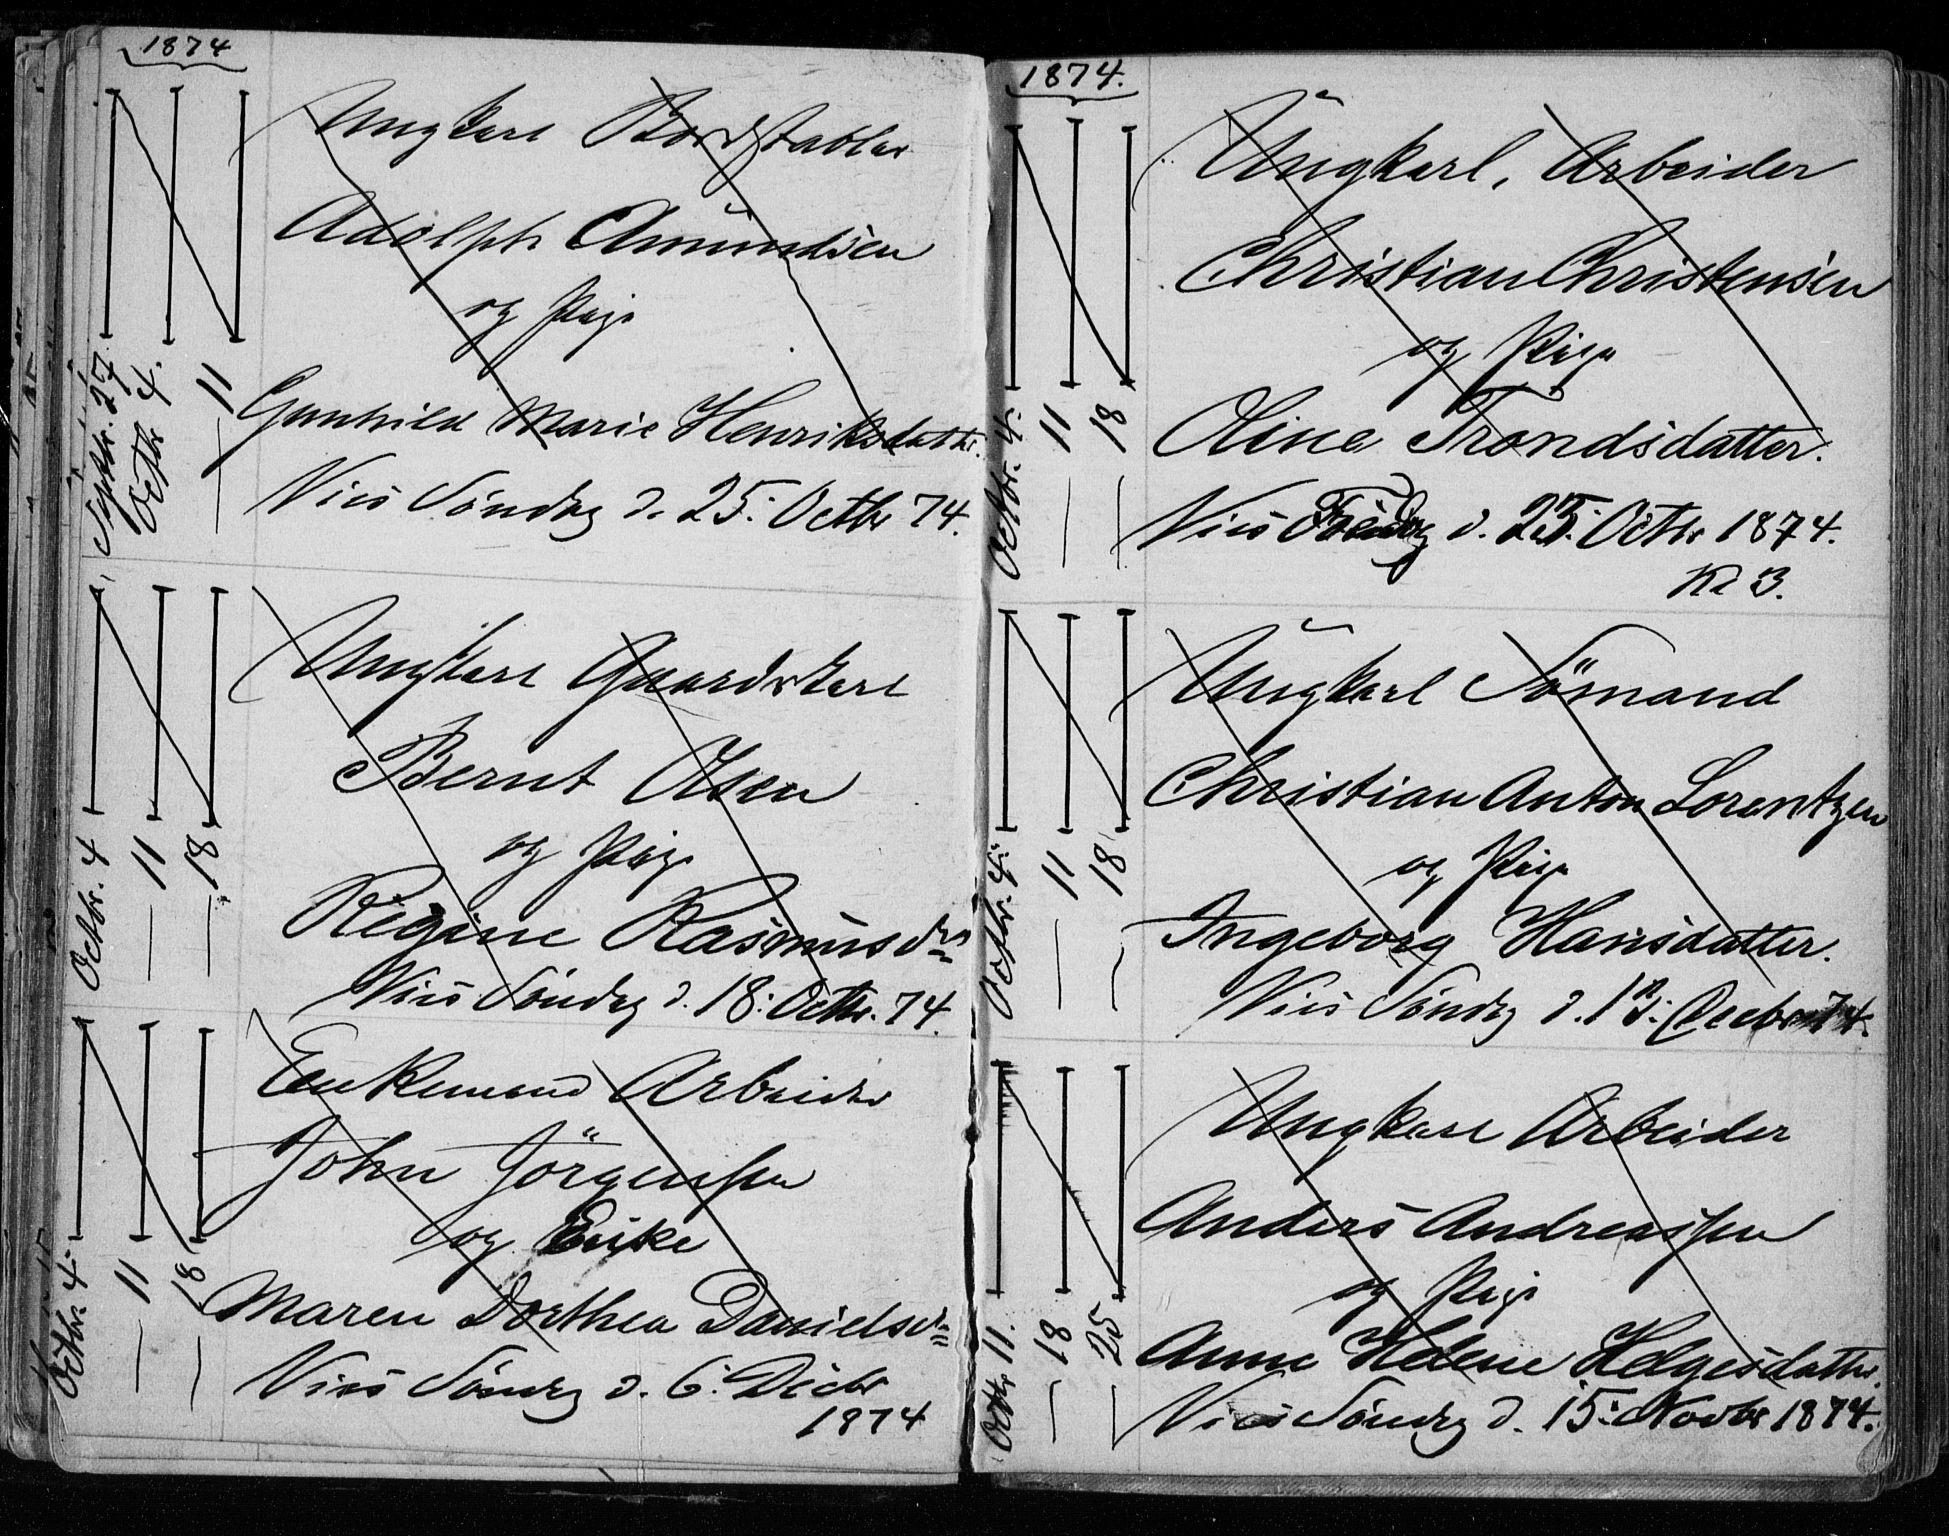 1874
Ungkarl Bordstabler
Adolph Amundsen
og Pige
Septbr. 27.
Octbr 4.
— 11
Gunhild Marie Henriksdatter.
Vies Söndag d. 25. Octbr 74.
Ungkarl Gaardskarl
Bernt Olsen
og Pige
Octbr. 4
— 11
— 18.
Regine Rasmusdr
Vies Söndag d. 18. Octbr. 74.
Enkemand Arbeider
John Jörgensen
og Enke
Octbr. 4.
— 11
— 18
Maren Dorthea Danielsdr
Vies Söndag d. 6. Decbr
1874
1874.
Ungkarl, Arbeider
Christian Christensen
og Pige
Octbr. 4.
— 11
— 18
Oline Trondsdatter.
Vies d. 23. Octbr 1874.
Kl 3.
Ungkarl Sömand
Christian Anton Lorentzen
og Pige
Octbr. 4.
— 11
— 18
Ingeborg Hansdatter.
Vies Söndag d. 13. Decbr 74.
Ungkarl Arbeider
Anders Andreassen
og Pige
Octbr 11.
— 18
— 25
Anne Helene Helgesdatter.
Vies Söndag d. 15. Novbr 1874.